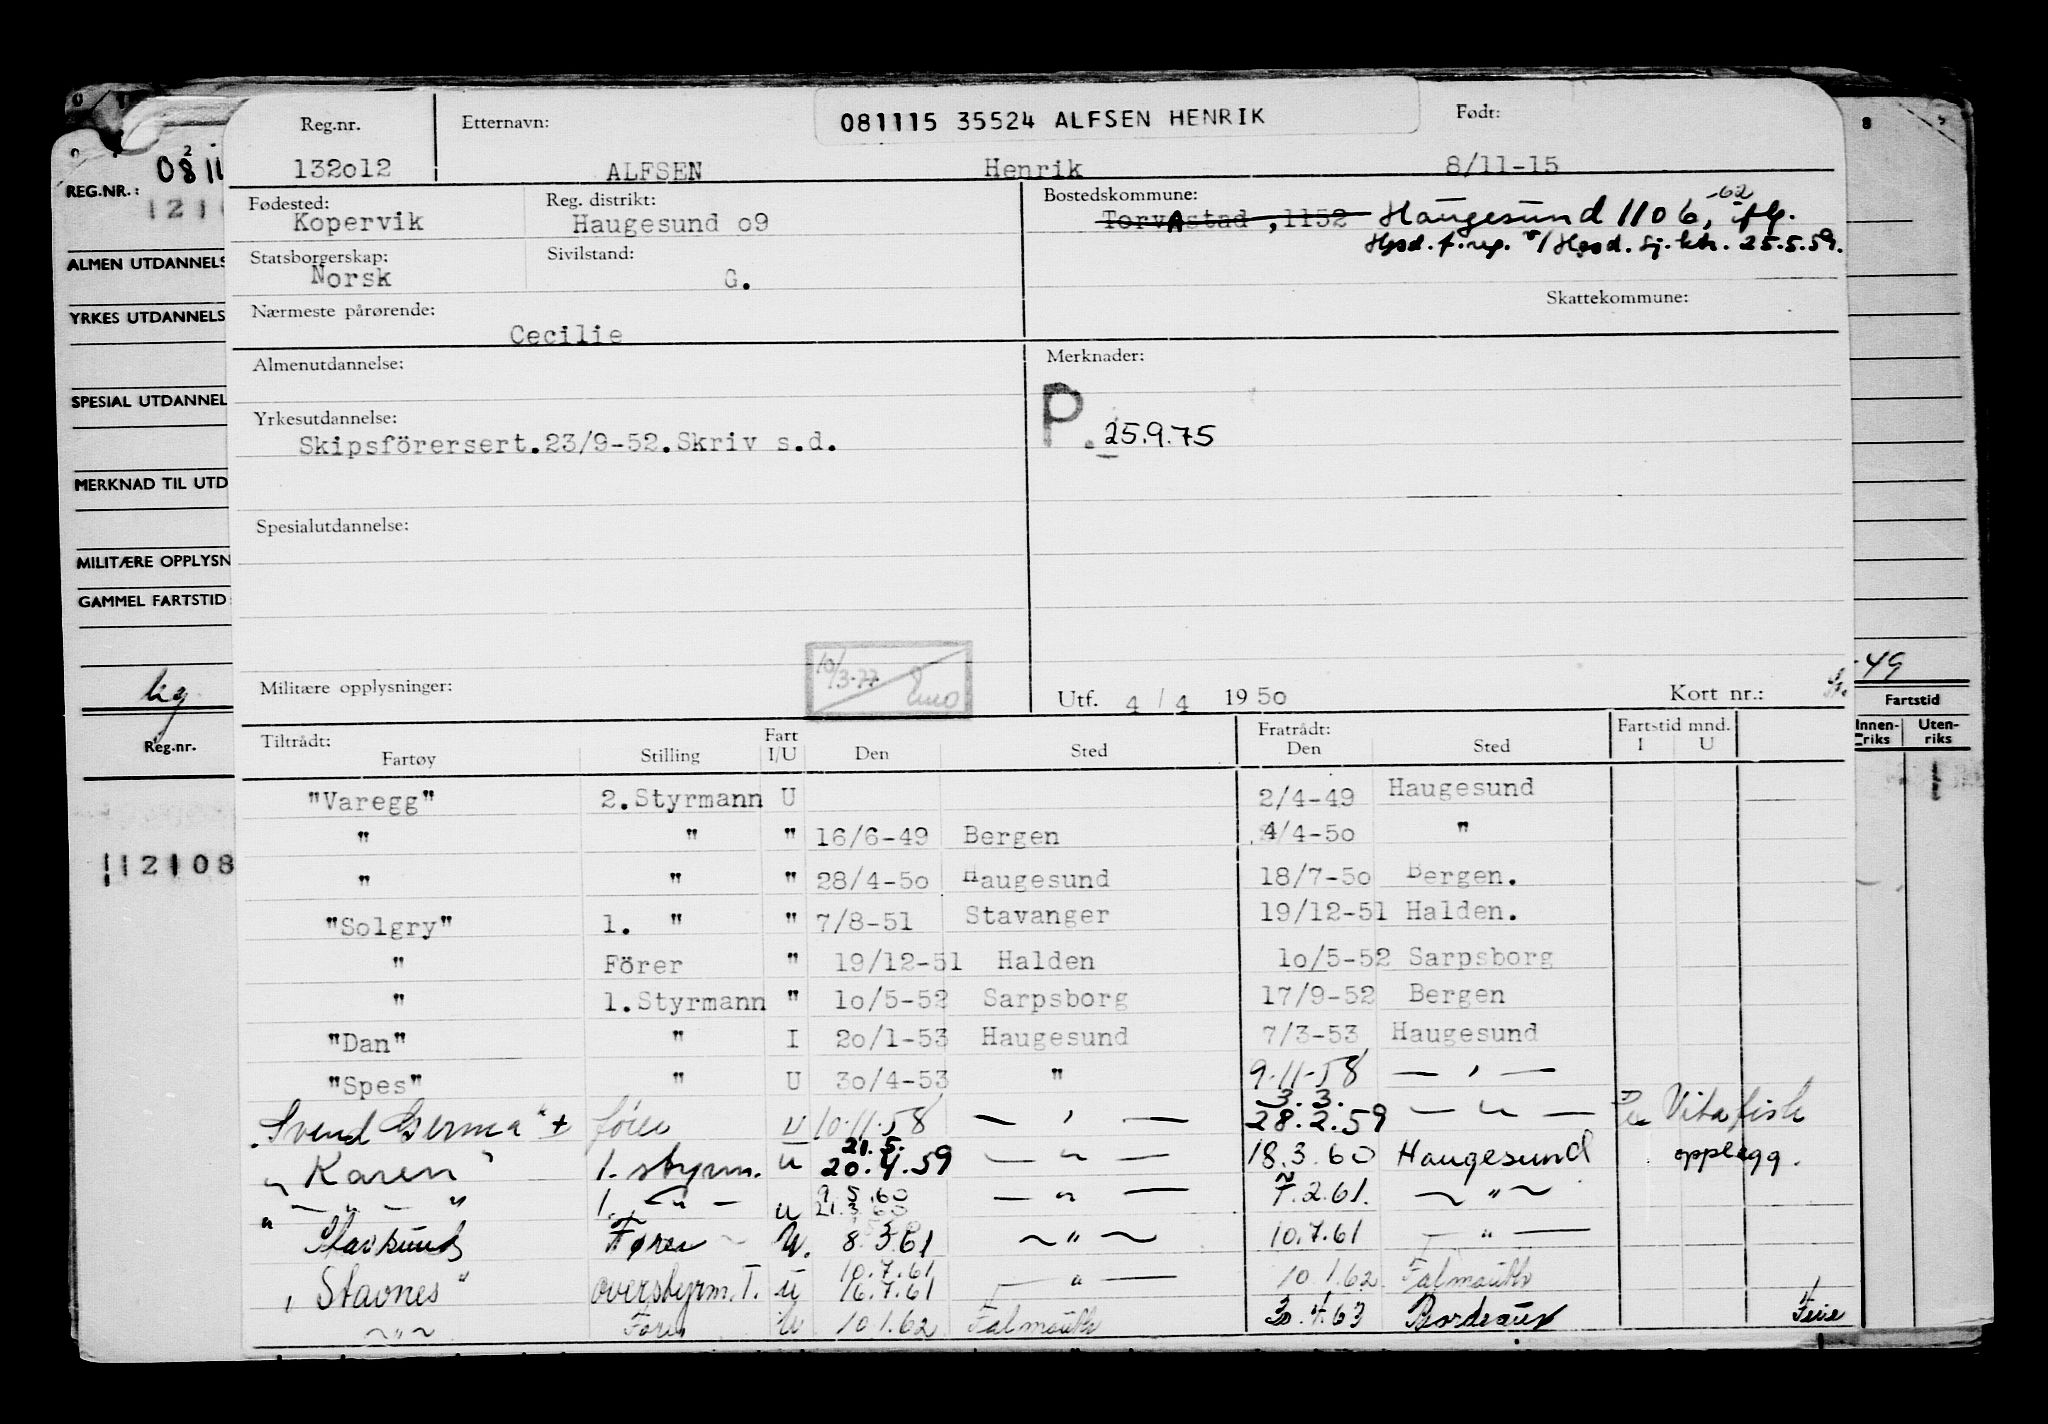 Reg.nr. Etternavn: 081115 35524 ALFSEN HENRIK Født:
132o12 ALFSEN Henrik 8/11-15
Fødested: Reg. distrikt: Bostedskommune:
Kopervik Haugesund o9 TorvAstad ,1152 Haugesund 1106, -62 iflg.
Hgsd. f.reg. v/ Hgsd. sj. ktr. 25.5.59.
Statsborgerskap: Sivilstand:
Norsk G.
Skattekommune:
Nærmeste pårørende:
Cecilie
Almenutdannelse: Merknader:
P. 25.9.75
Yrkesutdannelse:
Skipsförersert.23/9-52.Skriv s.d.
Spesialutdannelse:
10/3-77
Militære opplysninger: Utf. 4 / 4 19 5o Kort nr.:
Tiltrådt: Fart Fratrådt: Fartstid mnd.
Fartøy Stilling I/U Den Sted Den Sted I U
"Varegg" 2.Styrmann U 2/4-49 Haugesund
" " " 16/6-49 Bergen 4/4-5o "
" " " 28/4-5o Haugesund 18/7-5o Bergen.
"Solgry" 1. " " 7/8-51 Stavanger 19/12-51 Halden.
" Förer " 19/12-51 Halden 1o/5-52 Sarpsborg
" 1.Styrmann " 1o/5-52 Sarpsborg 17/9-52 Bergen
"Dan" " I 2o/1-53 Haugesund 7/3-53 Haugesund
"Spes" " U 3o/4-53 " 9.11.58 — " —
3.3.
"Svend Germa" + fører U 10.11.58 — " — 28.2.59 — " — Vitafisk
21.5.
"Karen" 1. styrm. u 20.4.59 — " — 18.3.60 Haugesund opplagg.
9.5.60
" — " — " 1. — " — u 21.3.60 — " — 7.2.61. — " —
" Fører — U. 8.3.61 — " — 10.7.61 — " —
10.7.61
"Stavnes" overstyrm. I. u 16.7.61 — " — 10.1.62 Falmouth
— " — Fører U 10.1.62 Falmouth 30.4.63 Bordeaux Ferie
08 11
REG.NR.:
ALMEN UTDANNELS
YRKES UTDANNELS
SPESIAL UTDANNEL
MERKNAD TIL UTD
MILITÆRE OPPLYSN
GAMMEL FARTSTID
Reg.nr.
12108
-49
Fartstid
Innen- Uten-
riks riks